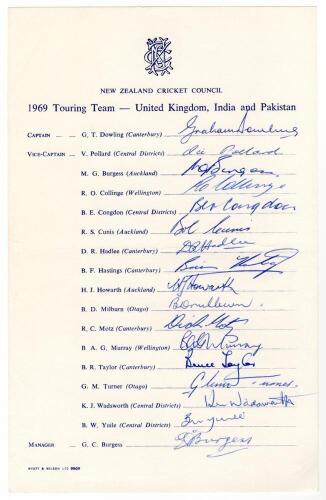 NEW ZEALAND CRICKET COUNCIL
1969 Touring Team — United Kingdom, India and Pakistan
CAPTAIN — — G. T. DOWLING (Canterbury) Graham Dowling
VICE-CAPTAIN — V. POLLARD (Central Districts) Vic Pollard
M. G. BURGESS (Auckland) MG Burgess
R. O. COLLINGE (Wellington) RO Collinge
B. E. CONGDON (Central Districts) Bev Congdon
R. S. CUNIS (Auckland) Bob Cunis
D. R. HADLEE (Canterbury) DR Hadlee
B. F. HASTINGS (Canterbury) Brian Hastings
H. J. HOWARTH (Auckland) HJ Howarth
B. D. MILBURN (Otago) B.D. Milburn.
R. C. MOTZ (Canterbury) Dick Motz
B. A. G. MURRAY (Wellington) BAG Murray
B. R. TAYLOR (Canterbury) Bruce Taylor
G. M. TURNER (Otago) Glenn Turner
K. J. WADSWORTH (Central Districts) Ken Wadsworth
B. W. YUILE (Central Districts) Bryan Yuile
MANAGER — G. C. BURGESS G Burgess